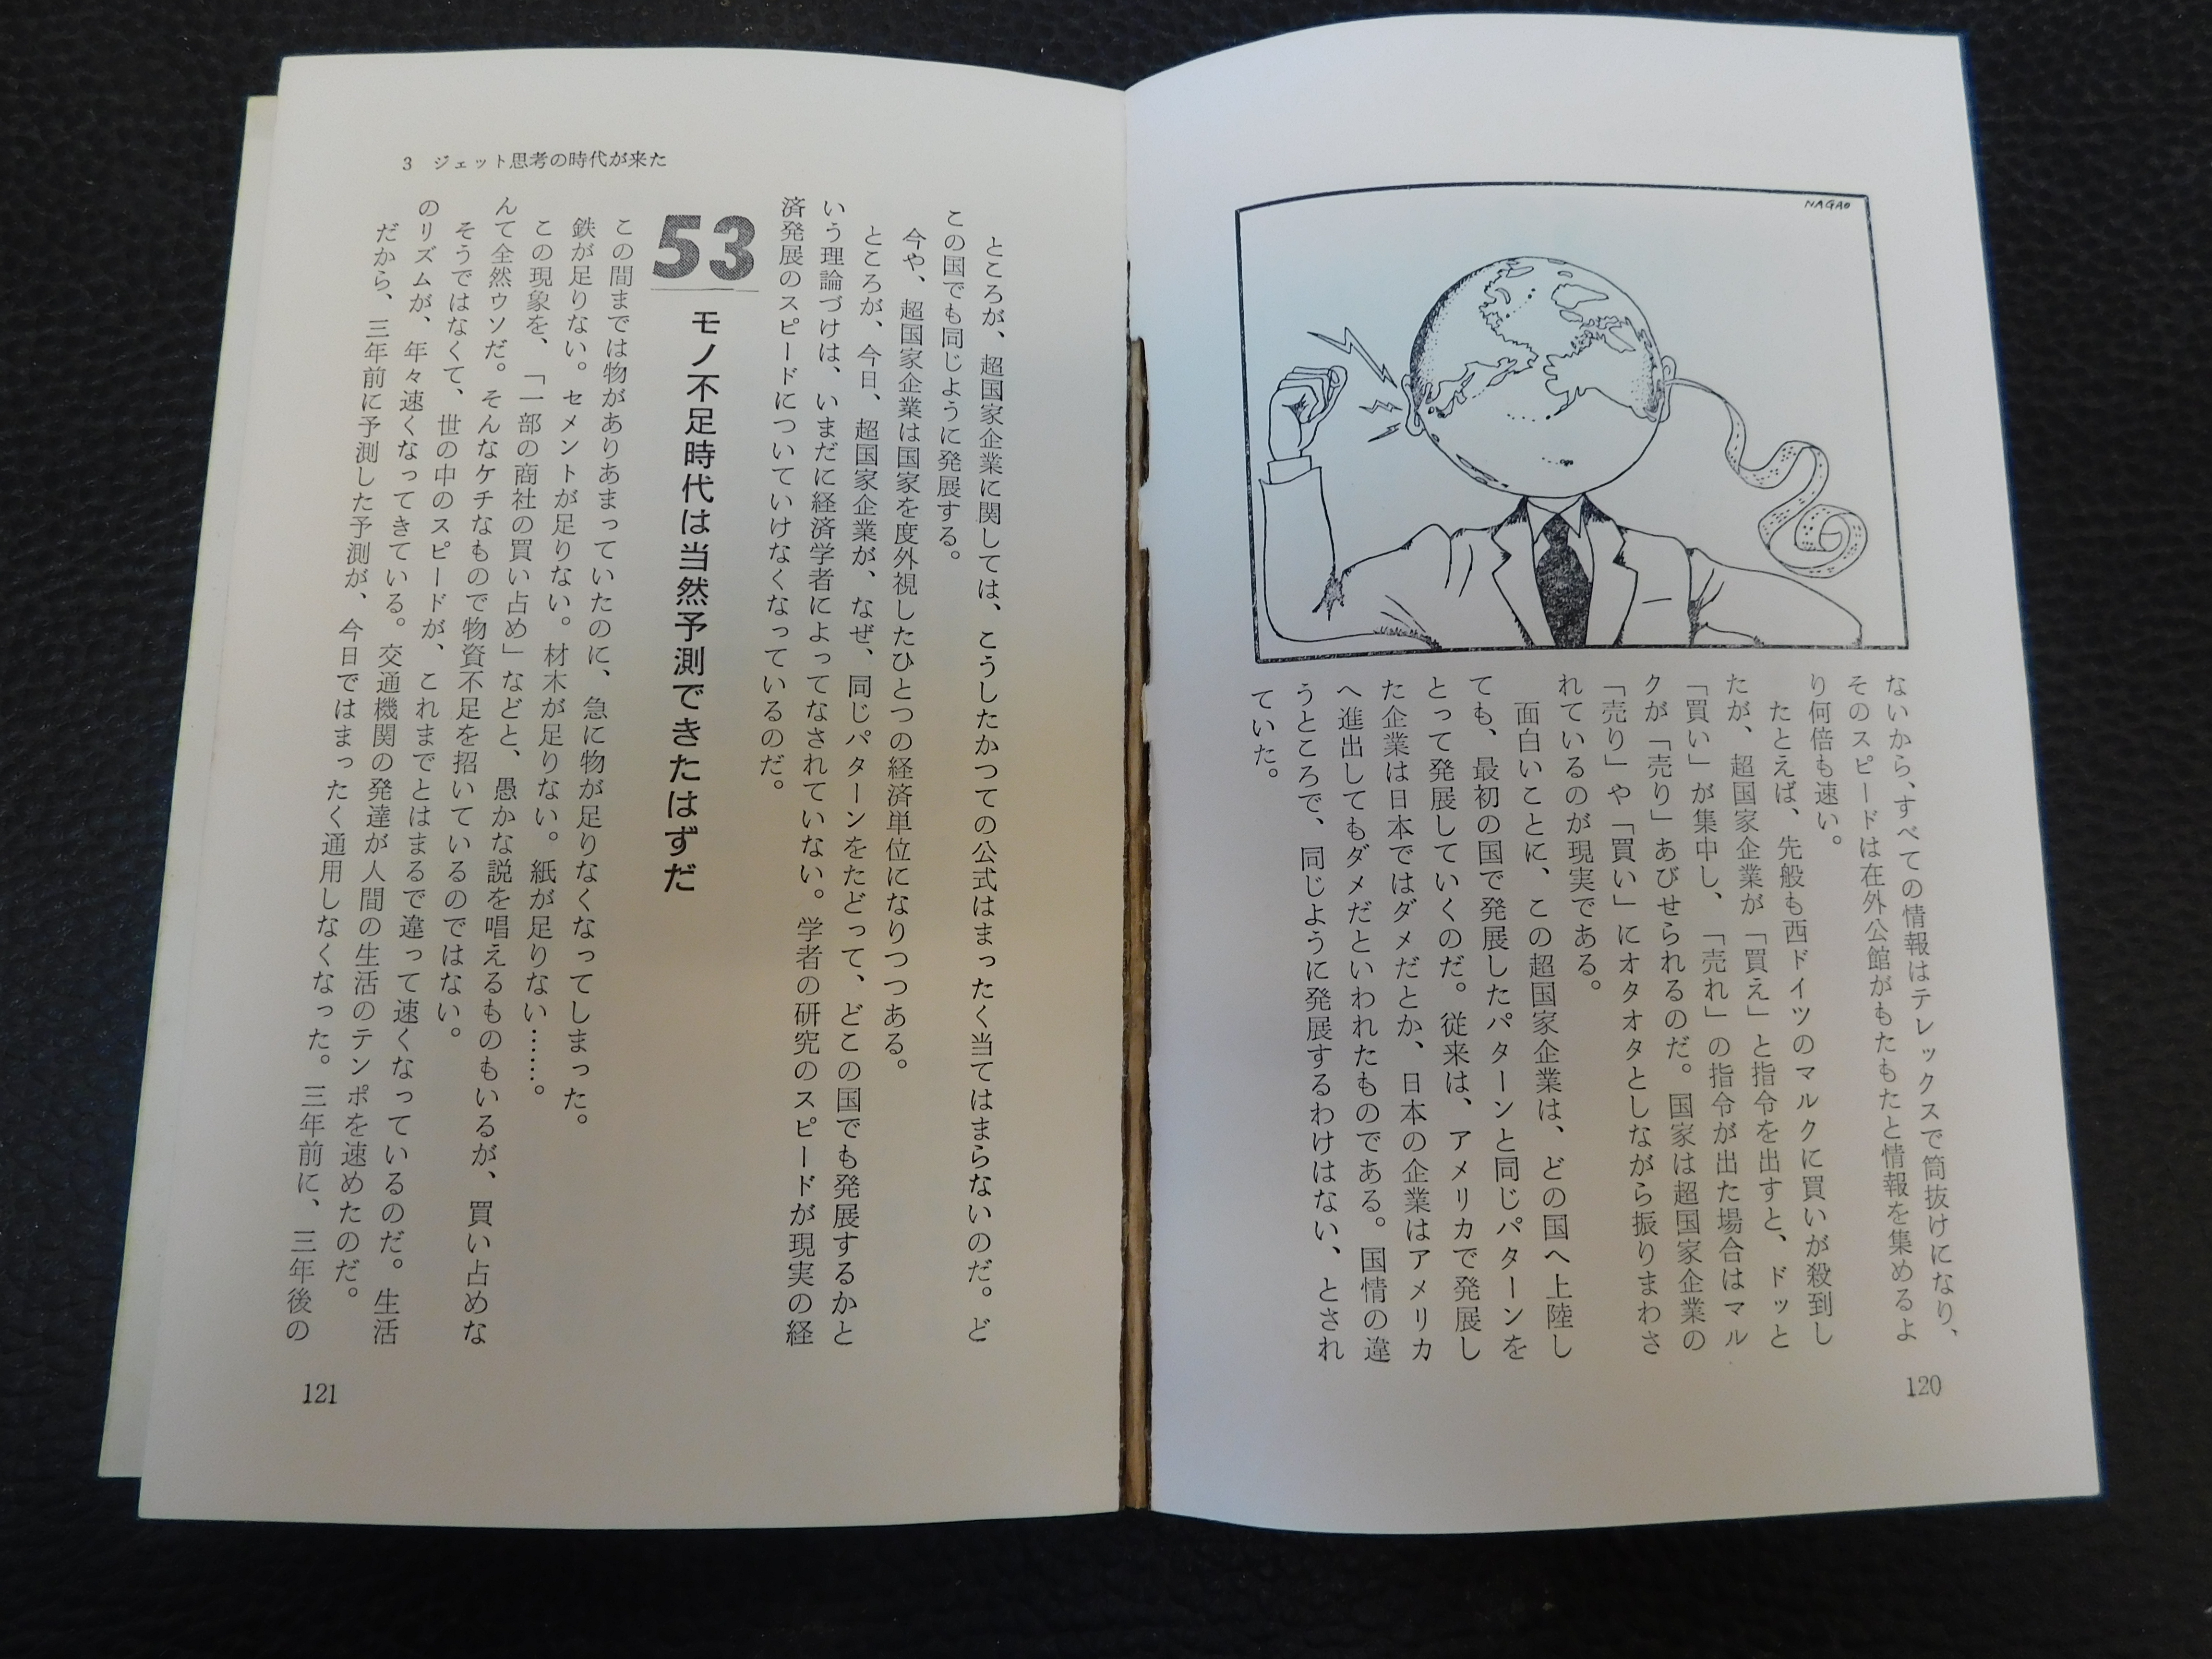 NAGAO
ないから、すべての情報はテレックスで筒抜けになり、
そのスピードは在外公館がもたもたと情報を集めるよ
り何倍も速い。
たとえば、先般も西ドイツのマルクに買いが殺到し
たが、超国家企業が「買え」と指令を出すと、ドッと
「買い」が集中し、「売れ」の指令が出た場合はマル
クが「売り」あびせられるのだ。国家は超国家企業の
「売り」や「買い」にオタオタとしながら振りまわさ
れているのが現実である。
面白いことに、この超国家企業は、どの国へ上陸し
ても、最初の国で発展したパターンと同じパターンを
とって発展していくのだ。従来は、アメリカで発展し
た企業は日本ではダメだとか、日本の企業はアメリカ
へ進出してもダメだといわれたものである。国情の違
うところで、同じように発展するわけはない、とされ
ていた。
120
ところが、超国家企業に関しては、こうしたかつての公式はまったく当てはまらないのだ。ど
この国でも同じように発展する。
今や、超国家企業は国家を度外視したひとつの経済単位になりつつある。
ところが、今日、超国家企業が、なぜ、同じパターンをたどって、どこの国でも発展するかと
いう理論づけは、いまだに経済学者によってなされていない。学者の研究のスピードが現実の経
済発展のスピードについていけなくなっているのだ。
53
モノ不足時代は当然予測できたはずだ
この間までは物がありあまっていたのに、急に物が足りなくなってしまった。
鉄が足りない。セメントが足りない。材木が足りない。紙が足りない……。
この現象を、「一部の商社の買い占め」などと、愚かな説を唱えるものもいるが、買い占めな
んて全然ウソだ。そんなケチなもので物資不足を招いているのではない。
そうではなくて、世の中のスピードが、これまでとはまるで違って速くなっているのだ。生活
のリズムが、年々速くなってきている。交通機関の発達が人間の生活のテンポを速めたのだ。
だから、三年前に予測した予測が、今日ではまったく通用しなくなった。三年前に、三年後の
3 ジェット思考の時代が来た
121